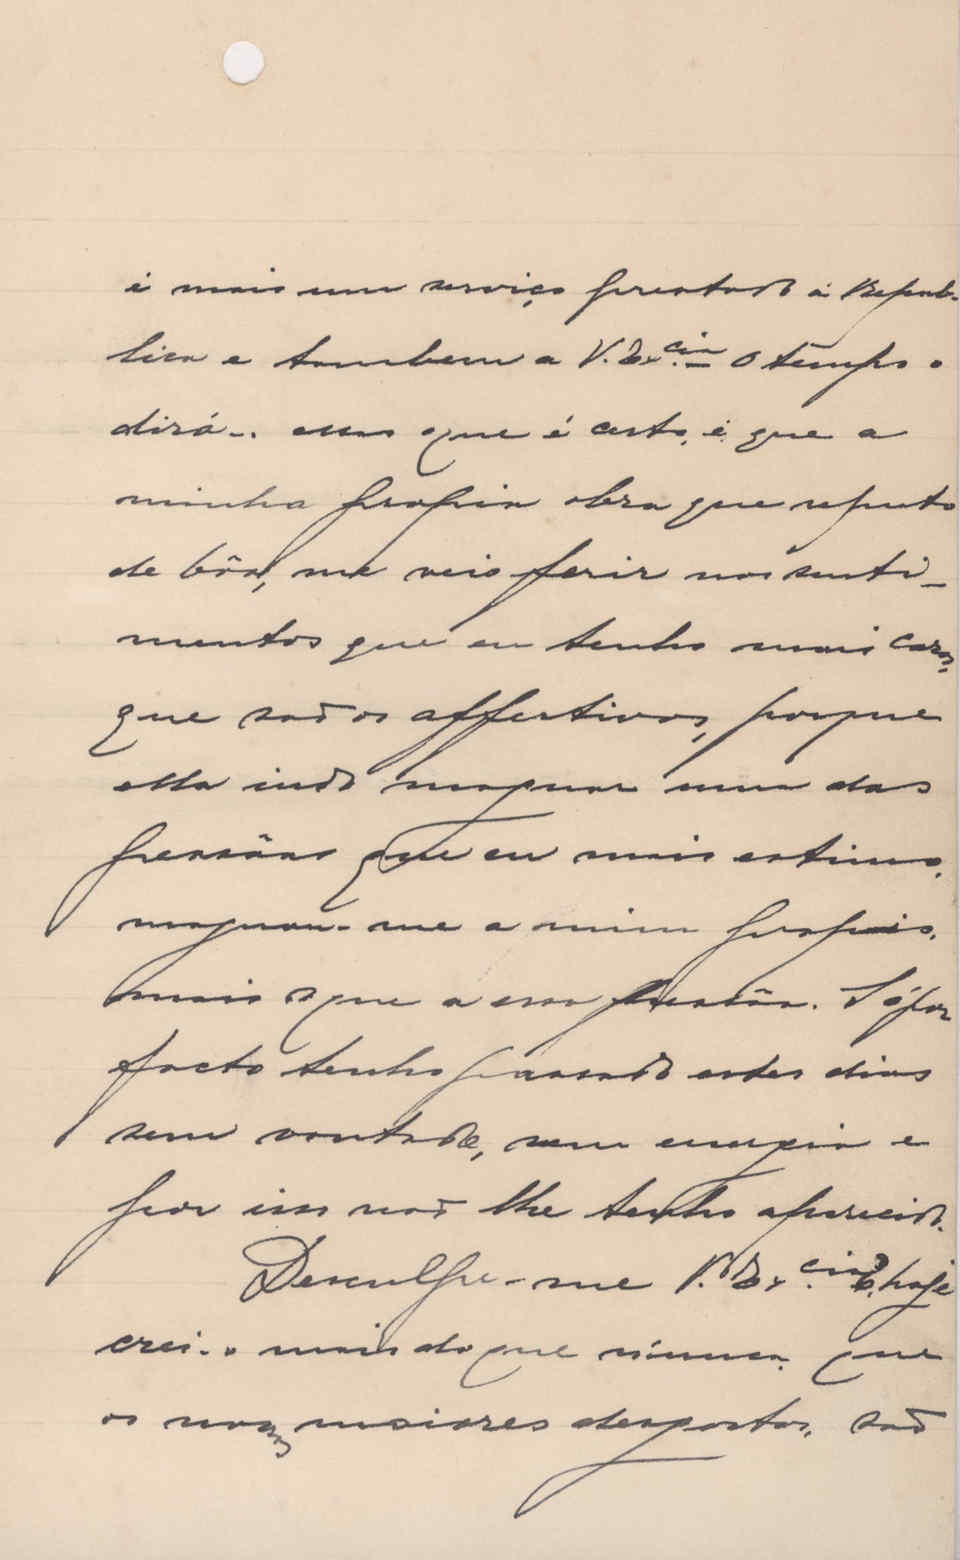 é mais um serviço prestado á Repub-
lica e tambem a V. Ex.cia O tempo o
dirá.. mas o que é certo, é que a
minha propria obra que reputo
de bôa, me veio ferir nos senti-
mentos que eu tenho mais caros,
que são os affectivos, porque
ella indo maguar uma das
pessôas que eu mais estimo,
maguou-me a mim proprio,
mais que a essa pessôa. Só por
facto tenho passado estes dias
sem vontade, sem energia e
por isso não lhe tenho aparecido.
Desculpe-me V. Ex.cia, hoje
crei-o mais do que nunca, que
os nossos maiores desgostos, são